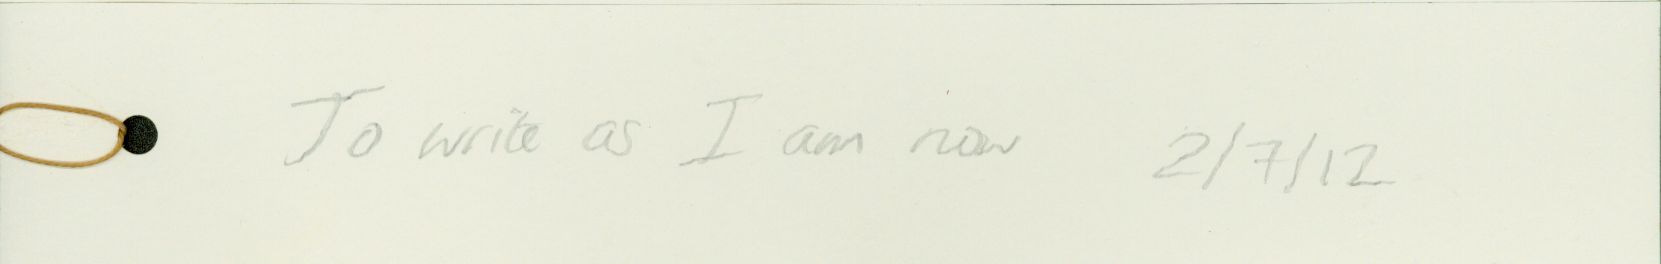 To write as I am now 2/7/12